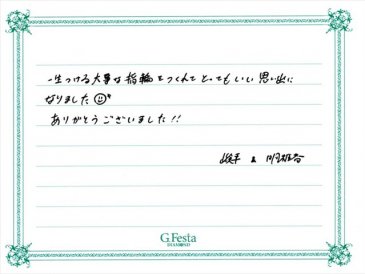 一生つける大事な指輪をつくれて とってもいい思い出に
なりました
ありがとうございました!!
&
G.Festa
DIAMOND